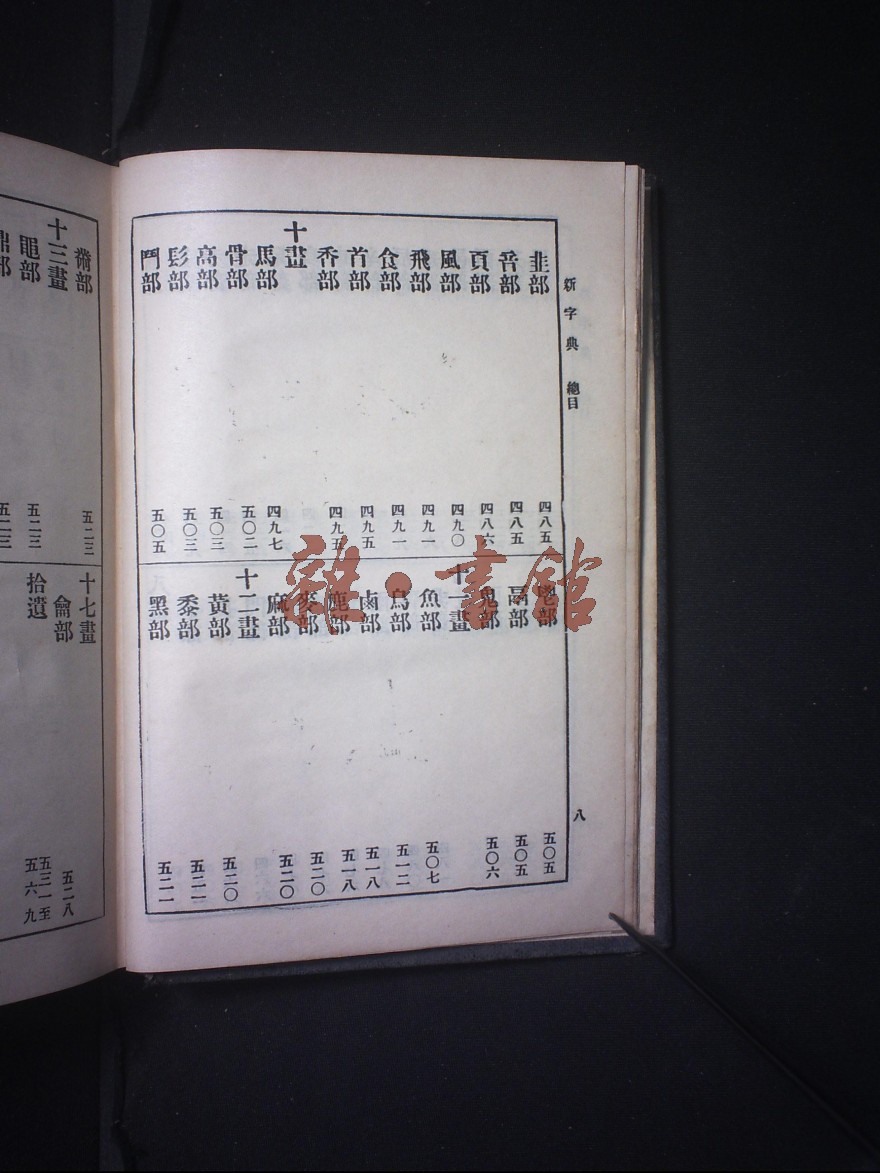 新字典 總目
八
韭部 四八五
音部 四八五
頁部 四八六
風部 四九〇
飛部 四九一
食部 四九一
首部 四九五
香部 四九五
十畫
馬部 四九七
骨部 五〇二
高部 五〇三
髟部 五〇三
鬥部 五〇五
鬯部 五〇五
鬲部 五〇五
鬼部 五〇六
十一畫
魚部 五〇七
鳥部 五一二
鹵部 五一八
鹿部 五一八
麥部 五二〇
麻部 五二〇
十二畫
黃部 五二〇
黍部 五二一
黑部 五二一
黹部 五二三
十三畫
黽部 五二三
鼎部 五二三
十七畫
龠部 五二八
拾遺 五三一至五六九
雜·書館